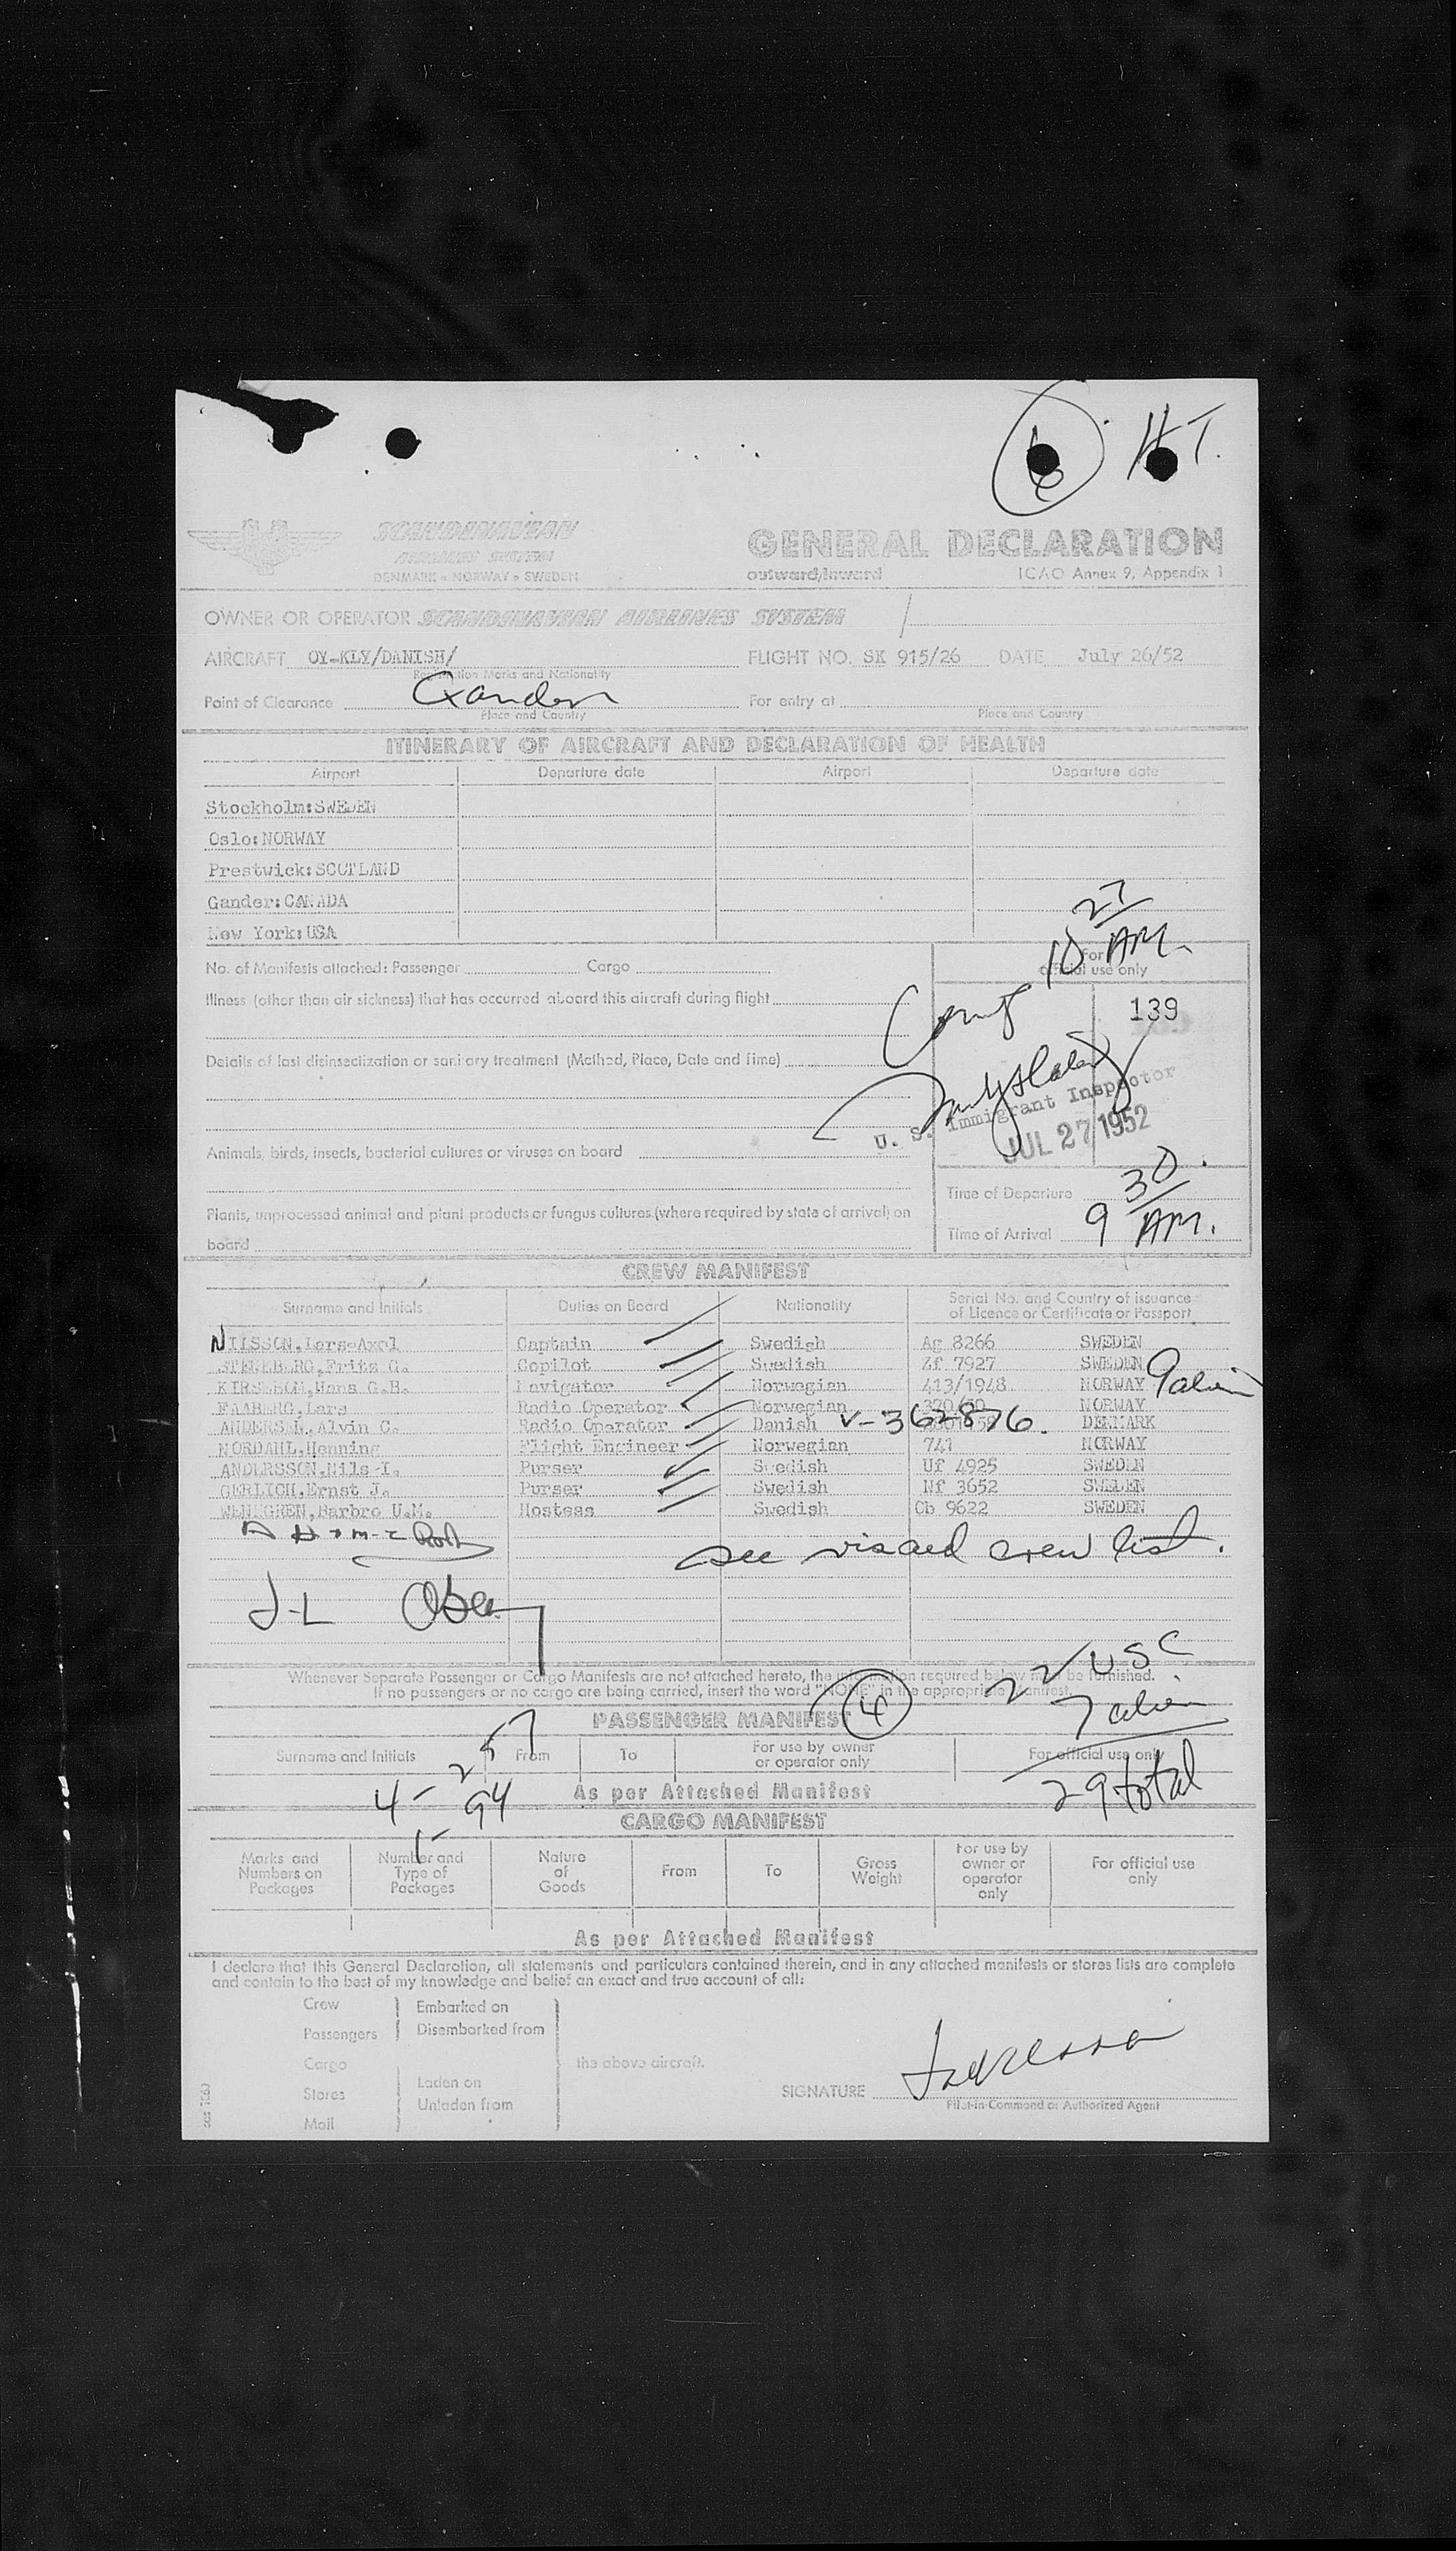 6 H T.
SCANDINAVIAN
AIRLINES SYSTEM
DENMARK • NORWAY • SWEDEN
GENERAL DECLARATION
outward/inward ICAO Annex 9, Appendix 1
OWNER OR OPERATOR SCANDINAVIAN AIRLINES SYSTEM
AIRCRAFT OY-KLY/DANISH/ FLIGHT NO. SK 915/26 DATE July 26/52
Registration Marks and Nationality
Point of Clearance Gander For entry at
Place and Country Place and Country
ITINERARY OF AIRCRAFT AND DECLARATION OF HEALTH
Airport Departure date Airport Departure date
Stockholm:SWEDEN
Oslo:NORWAY
Prestwick:SCOTLAND
Gander:CANADA
New York:USA
10 27 AM.
No. of Manifests attached: Passenger Cargo
For official use only
Illness (other than air sickness) that has occurred aboard this aircraft during flight
139
Details of last disinsectization or sanitary treatment (Method, Place, Date and Time)
U. S. Immigrant Inspector
JUL 27 1952
Animals, birds, insects, bacterial cultures or viruses on board
Time of Departure
Plants, unprocessed animal and plant products or fungus cultures (where required by state of arrival) on
board
Time of Arrival 9 30 AM.
CREW MANIFEST
Surname and Initials Duties on Board Nationality Serial No. and Country of issuance
of Licence or Certificate or Passport
NILSSON,Lars-Axel Captain Swedish Ag 8266 SWEDEN
STENEBERG,Fritz G. Copilot Swedish Zf 7927 SWEDEN
Hans G.B. Navigator Norwegian 413/1948 NORWAY 9 alien
FAABERG,Lars Radio Operator Norwegian NORWAY
ANDERSEN,Alvin C. Radio Operator Danish V-362876. DENMARK
NORDAHL,Henning Flight Engineer Norwegian 741 NORWAY
ANDERSSON,Nils-I. Purser Swedish Uf 4925 SWEDEN
GERLICH,Ernst J. Purser Swedish Nf 3652 SWEDEN
WENNGREN,Barbro U.M. Hostess Swedish Ob 9622 SWEDEN
see visaed crew list.
J-L
Whenever Separate Passenger or Cargo Manifests are not attached hereto, the information required below must be furnished.
If no passengers or no cargo are being carried, insert the word "NONE" in the appropriate manifest.
22 USC
7 alien
29 total
PASSENGER MANIFEST 4
Surname and Initials From To For use by owner
or operator only For official use only
4- 257
1- 94
As per Attached Manifest
CARGO MANIFEST
Marks and
Numbers on
Packages Number and
Type of
Packages Nature
of
Goods From To Gross
Weight For use by
owner or
operator
only For official use
only
As per Attached Manifest
I declare that this General Declaration, all statements and particulars contained therein, and in any attached manifests or stores lists are complete
and contain to the best of my knowledge and belief an exact and true account of all:
Crew Embarked on
Passengers Disembarked from
Cargo the above aircraft.
Stores Laden on
Mail Unladen from
SIGNATURE
Pilot-in-Command or Authorized Agent